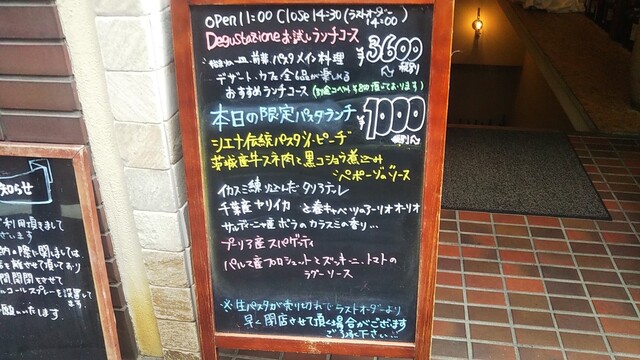 open 11:00 Close 14:30 (ラストオーダー 14:00)
Degustazione お試しランチコース
¥3600 税別
前菜 パスタ メイン料理
デザート、カフェ 全6品が楽しめる
おすすめランチコース
本日の限定パスタランチ ¥1000 税別
シエナ伝統パスタ ピーチ
茨城産牛スネ肉と黒コショウ煮込み
ペポーゾのソース
イカスミ練り込んだタリオリーニ
千葉産ヤリイカと春キャベツのアーリオオーリオ
サルディーニャ産ボラのカラスミの香り…
プーリア産スパゲッティ
パルマ産プロシュートとズッキーニ、トマトの
ラグーソース
※生パスタが売り切れでラストオーダーより
早く閉店させて頂く場合がございます
ご了承下さい…
知らせ
利用頂きまして
ございます
の際に関しましては
を離させて頂いており
間開閉をさせて
コールスプレーを設置して
願いいたします